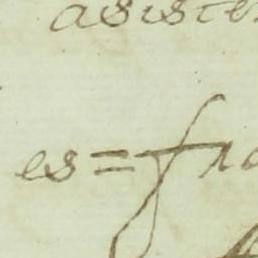 asiste
es=fra